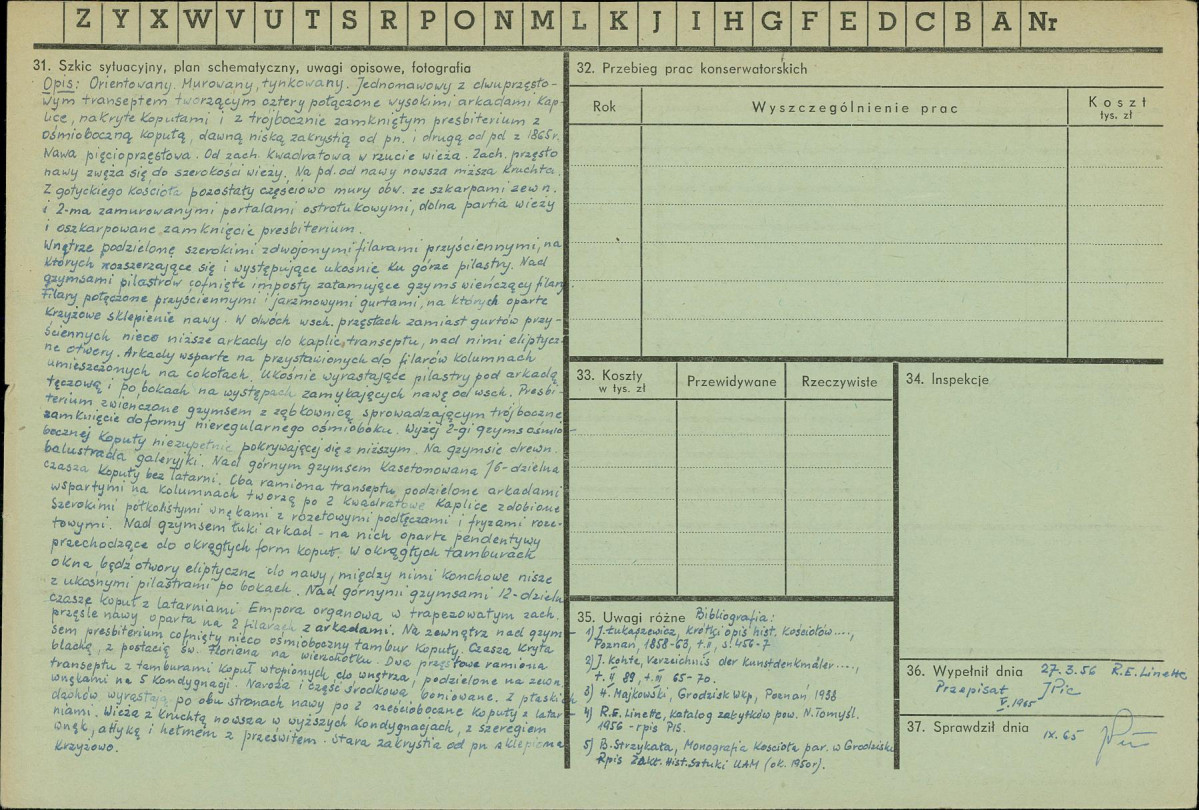 Z Y X W V U T S R P O N M L K J I H G F E D C B A Nr
31. Szkic sytuacyjny, plan schematyczny, uwagi opisowe, fotografia
Opis: Orientowany. Murowany, tynkowany. Jednonawowy z dwuprzęsło-
wym transeptem tworzącym cztery połączone wysokimi arkadami kap-
lice, nakryte kopułami i z trójbocznie zamkniętym presbiterium z
ośmioboczną kopułą, dawną niską zakrystią od pn. i drugą od pd z 1865r.
Nawa pięcioprzęsłowa. Od zach. kwadratowa w rzucie wieża. Zach. przęsło
nawy zwęża się do szerokości wieży. Na pd. od nawy nowsza niższa kruchta.
Z gotyckiego kościoła pozostały częściowo mury obw. ze szkarpami zewn.
i 2-ma zamurowanymi portalami ostrołukowymi, dolna partia wieży
i oszkarpowane zamknięcie presbiterium.
Wnętrze podzielone szerokimi zdwojonymi filarami przyściennymi, na
których rozszerzające się i występujące ukośnie ku górze pilastry. Nad
gzymsami pilastrów cofnięte imposty załamujące gzyms wieńczący filary
Filary połączone przyściennymi i jarzmowymi gurtami, na których oparte
krzyżowe sklepienie nawy. W dwóch wsch. przęsłach zamiast gurtów przy-
ściennych nieco niższe arkady do kaplic transeptu, nad nimi eliptycz-
ne otwory. Arkady wsparte na przystawionych do filarów kolumnach
umieszczonych na cokołach. Ukośnie wyrastające pilastry pod arkadą
tęczową i po bokach na występach zamykających nawę od wsch. Presbi-
terium zwieńczone gzymsem z ząbkownicą sprowadzającym trójboczne
zamknięcie do formy nieregularnego ośmioboku. Wyżej 2-gi gzyms ośmio-
bocznej kopuły niezupełnie pokrywającej się z niższym. Na gzymsie drewn.
balustrada galeryjki. Nad górnym gzymsem kasetonowana 16-dzielna
czasza kopuły bez latarni. Oba ramiona transeptu podzielone arkadami
wspartymi na kolumnach tworzą po 2 kwadratowe kaplice zdobione
szerokimi półkolistymi wnękami z rozetowymi podłęczami i fryzami roze-
towymi. Nad gzymsem łuki arkad - na nich oparte pendentywy
przechodzące do okrągłych form kopuł. W okrągłych tamburach
okna bądź otwory eliptyczne do nawy, między nimi konchowe nisze
z ukośnymi pilastrami po bokach. Nad górnymi gzymsami 12-dzieln
czasze kopuł z latarniami. Empora organowa w trapezowatym zach.
przęśle nawy oparta na 2 filarach z arkadami. Na zewnątrz nad gzym-
sem presbiterium cofnięty nieco ośmioboczny tambur kopuły. Czasza kryta
blachą, z postacią św. Floriana na wierzchołku. Dwu przęsłowe ramiona
transeptu z tamburami kopuł wtopionych do wnętrza, podzielone na zewn
wnękami na 5 kondygnacji. Naroża i część środkowa boniowane. Z płaskich
dachów wyrastają po obu stronach nawy po 2 sześcioboczne kopuły z latar-
niami. Wieża z kruchtą nowsza w wyższych kondygnacjach, z szeregiem
wnęk, attyką i hełmem z prześwitem. Stara zakrystia od pn sklepiona
krzyżowo.
32. Przebieg prac konserwatorskich
Rok
Wyszczególnienie prac
Koszt
tys. zł
33. Koszty
w tys. zł
Przewidywane
Rzeczywiste
34. Inspekcje
35. Uwagi różne Bibliografia:
1) J. Łukaszewicz, Krótki opis hist. Kościołów....,
Poznań, 1858-63, t.II, s. 456-7
2) J. Kohte, Verzeichnis der Kunstdenkmäler....,
t. II 89, t. III 65-70.
3) H. Majkowski, Grodzisk Wkp, Poznań 1938
4) R.E. Linette, Katalog zabytków pow. N. Tomyśl.
1956 - rpis PIS.
5) B. Strzykała, Monografia Kościoła par. w Grodzisku
Rpis Zakł. Hist. Sztuki UAM (ok. 1950r).
36. Wypełnił dnia 27.3.56 R.E. Linette
Przepisał JPic
V.1965
37. Sprawdził dnia IX.65